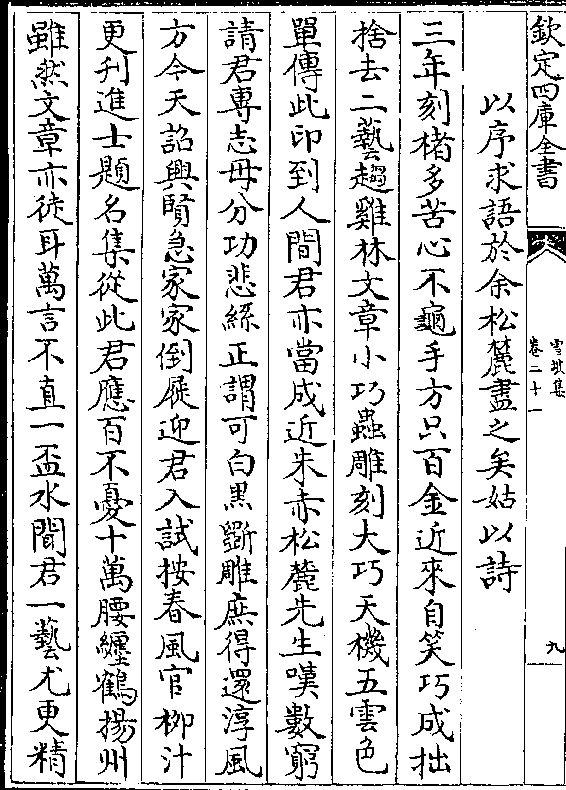 欽定四庫全書
雪坡集
卷二十一
九
以序求語於余松麓盡之矣姑以詩
三年刻楮多苦心不龜手方只百金近來自笑巧成拙
捨去二藝趨雞林文章小巧蟲雕刻大巧天機五雲色
單傳此印到人間君亦當成近朱赤松麓先生嘆數窮
請君專志毋分功悲絲正謂可白黑斵雕庶得還淳風
方今天詔興賢急家家倒屣迎君入試按春風官栁汁
更刋進士題名集從此君應百不憂十萬腰纏鶴揚州
雖然文章亦徒耳萬言不直一盃水聞君一藝尤更精